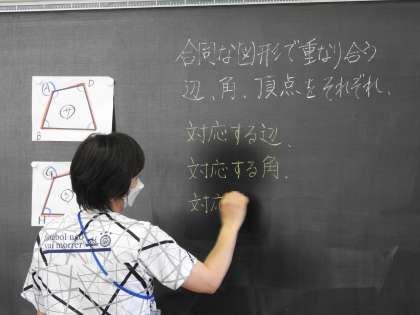 合同な図形で重なり合う
辺、角、頂点をそれぞれ、
対応する辺、
対応する角、
対応
A
D
サ
B